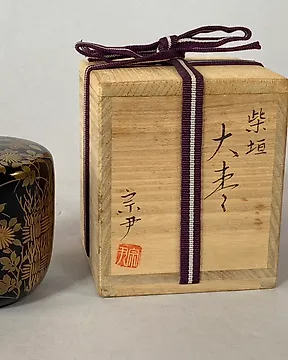 柴垣
大棗
宗尹